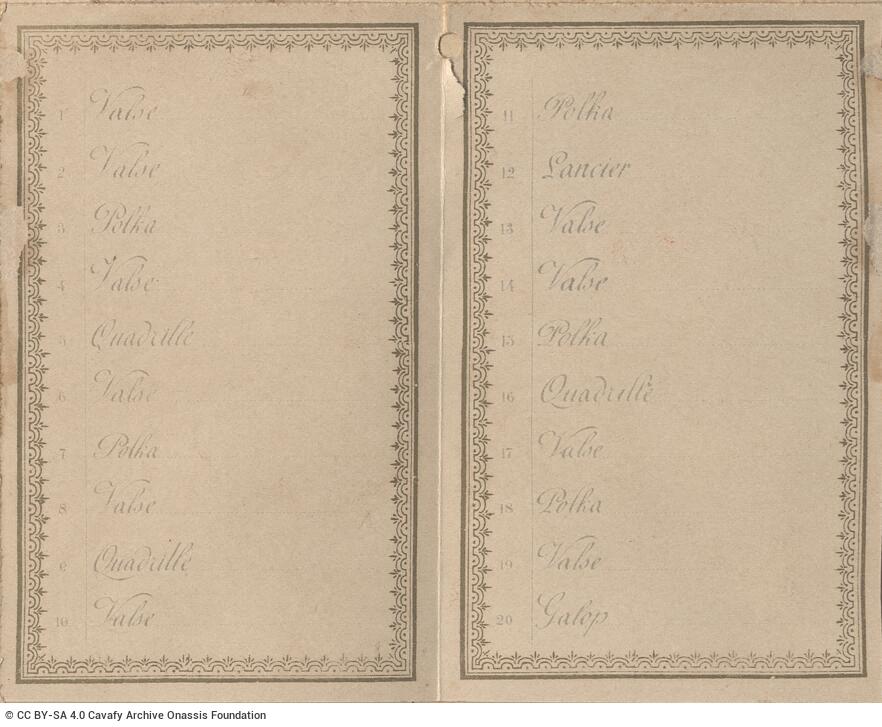 1 Valse
2 Valse
3 Polka
4 Valse
5 Quadrille
6 Valse
7 Polka
8 Valse
9 Quadrille
10 Valse
11 Polka
12 Lancier
13 Valse
14 Valse
15 Polka
16 Quadrille
17 Valse
18 Polka
19 Valse
20 Galop
© CC BY-SA 4.0 Cavafy Archive Onassis Foundation